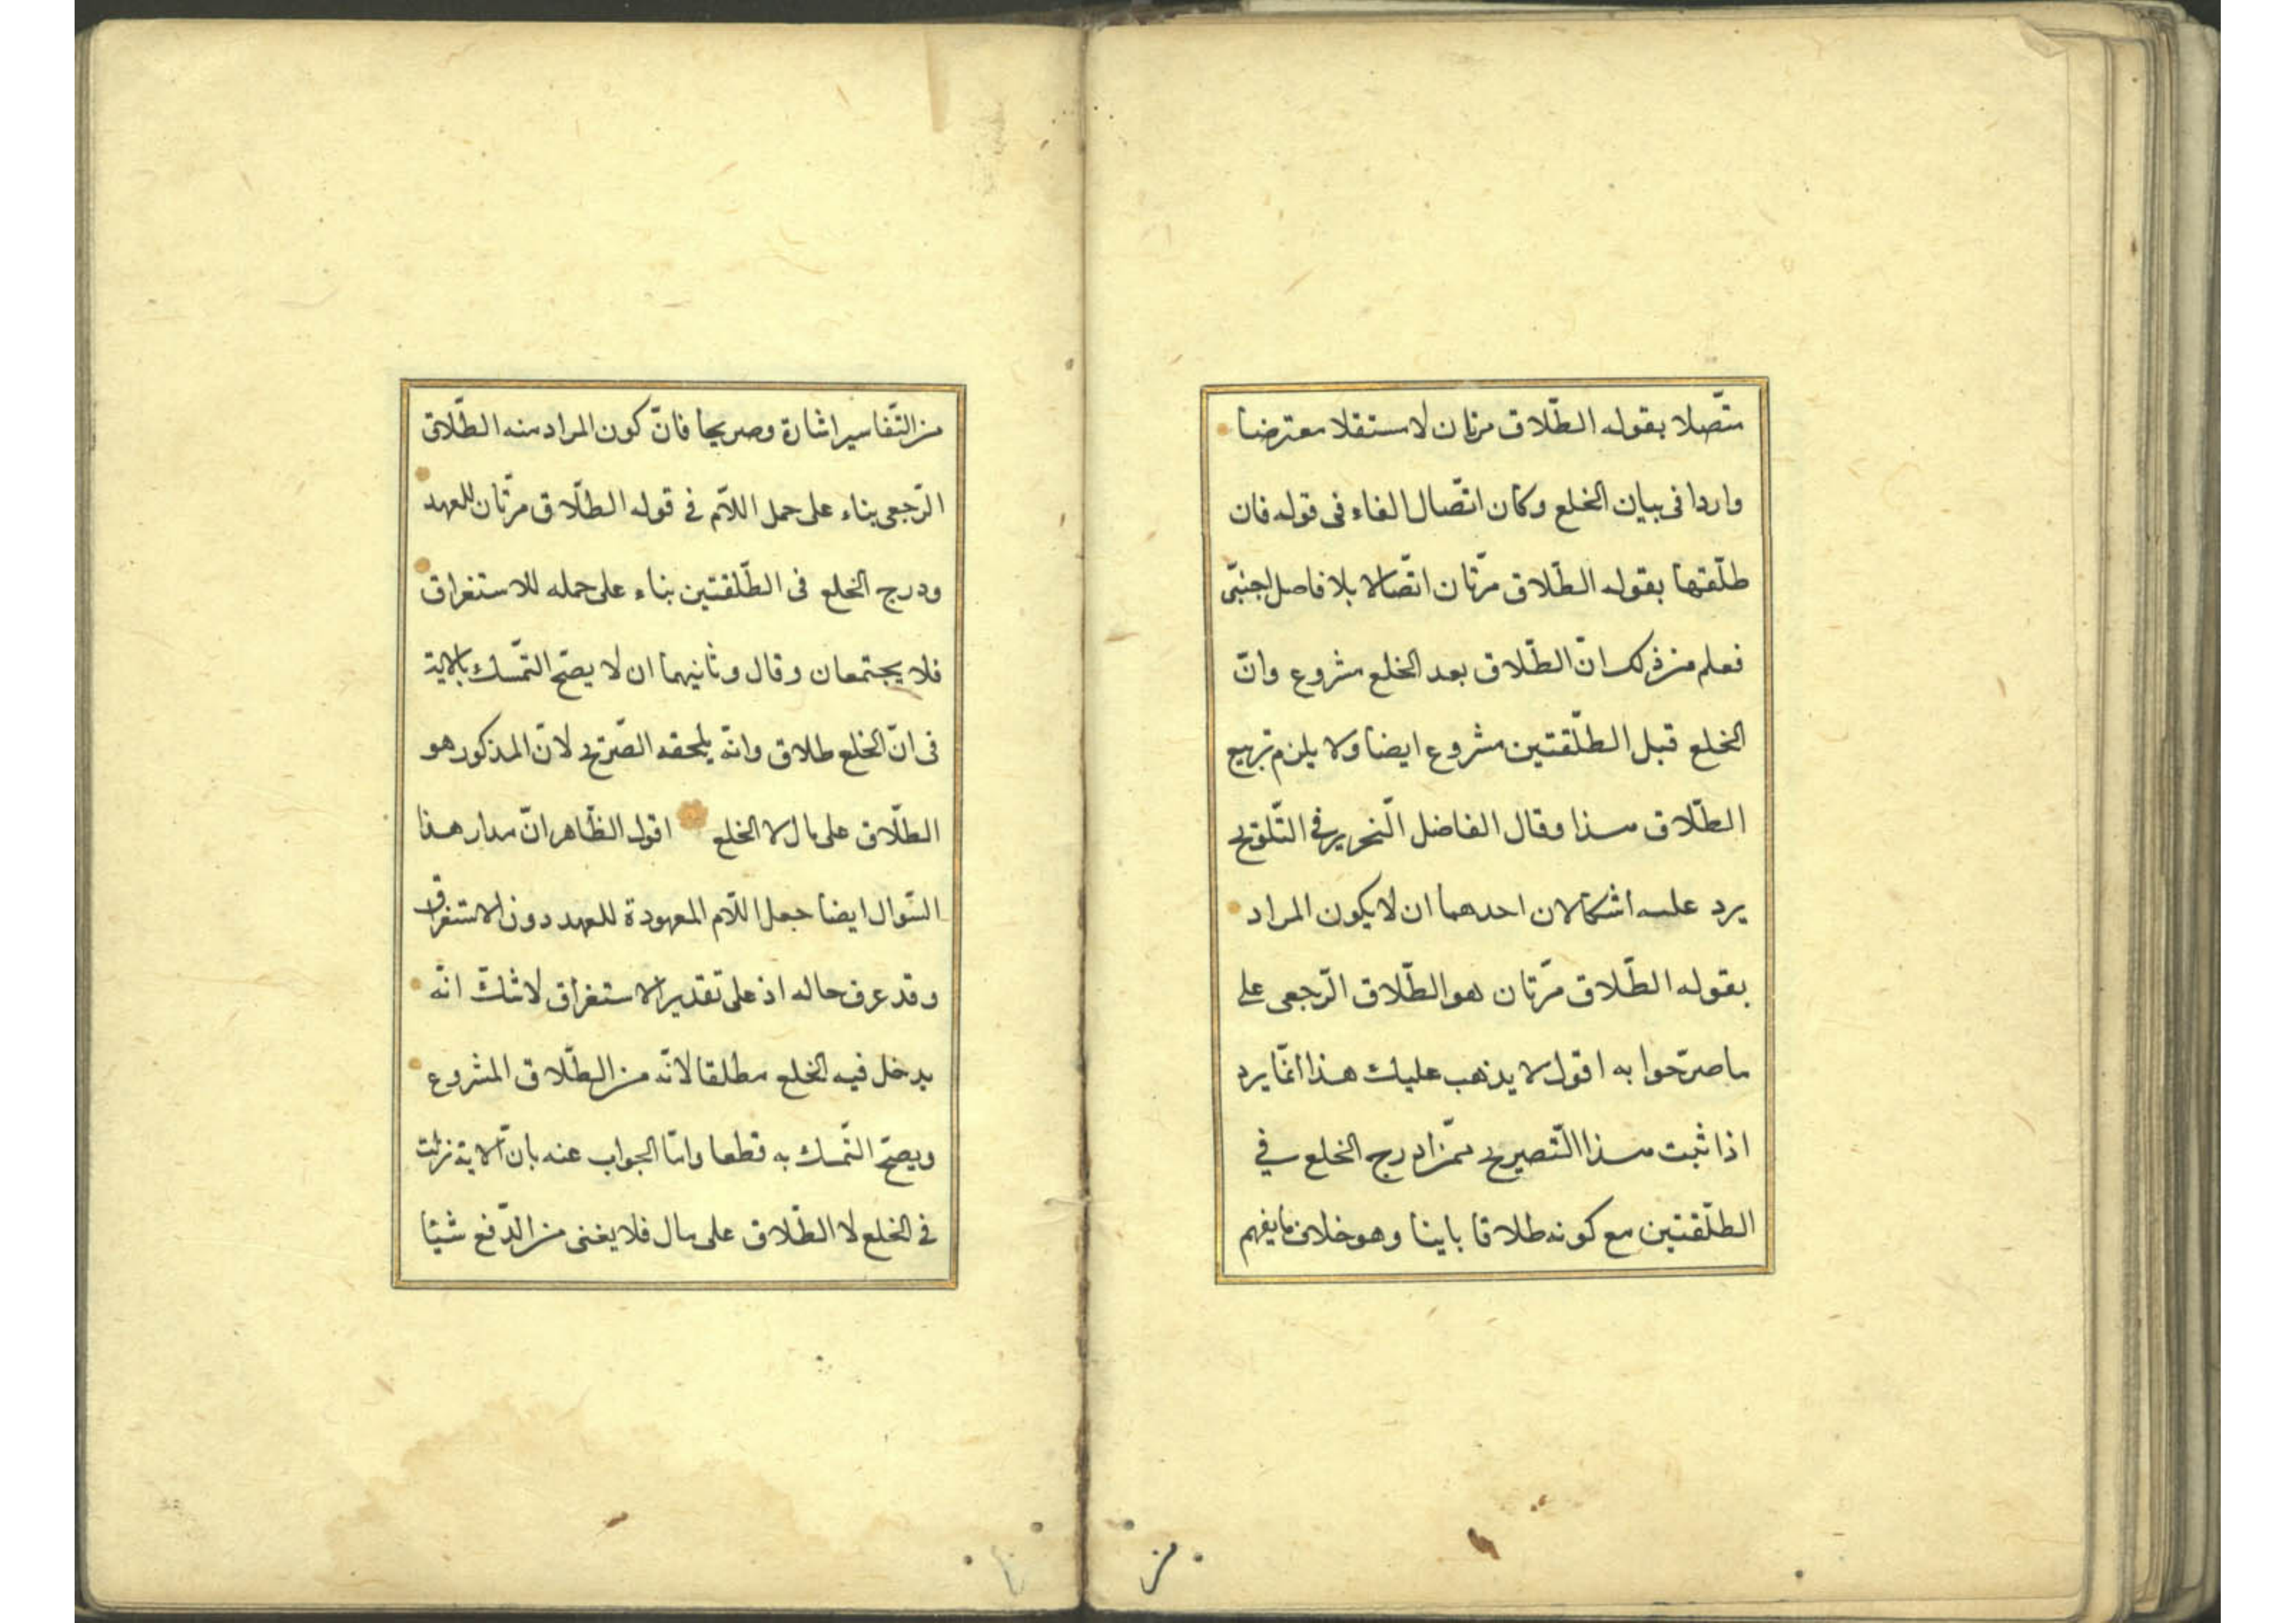 متّصلا بقوله الطّلاق مرتان لا مستقلا معترضا
واردا فى بيان الخلع وكان اتّصال الفاء فى قوله فان
طلّقها بقوله الطّلاق مرّتان اتّصالا بلا فاصل اجنبىّ
فعلم من ذلك انّ الطّلاق بعد الخلع مشروع وانّ
الخلع قبل الطلّقتين مشروع ايضا ولا يلزم تربيع
الطّلاق هذا وقال الفاضل النّحرير فى التّلويح
يرد عليه اشكالان احدهما ان لا يكون المراد
بقوله الطّلاق مرّتان هو الطّلاق الرّجعى على
ما صرّحوا به اقول لا يذهب عليك هذا انّما يرد
اذا ثبت هذا التّصريح ممّن ادرج الخلع فى
الطلّقتين مع كونه طلاقا باينا وهو خلاف ما يفهم
من
من التّفاسير اشارة وصريحا فانّ كون المراد منه الطّلاق
الرّجعى بناء على حمل اللاّم فى قوله الطلّاق مرّتان للعهد
ودرج الخلع فى الطّلقتين بناء على حمله للاستغراق
فلا يجتمعان وقال وثانيهما ان لا يصحّ التمّسك بالاية
فى انّ الخلع طلاق وانّه يلحقه الصّريح لانّ المذكور هو
الطلّاق على مال لا الخلع اقول الظّاهر انّ مدار هذا
السّوال ايضا جعل اللاّم المعهودة للعهد دون الاستغراق
وقد عرف حاله اذ على تقدير الاستغراق لا شكّ انّه
يدخل فيه الخلع مطلقا لانّه من الطّلاق المشروع
ويصحّ التّمسك به قطعا وامّا الجواب عنه بانّ الاية نزلت
فى الخلع لا الطّلاق على مال فلا يغنى من الدّفع شيئا